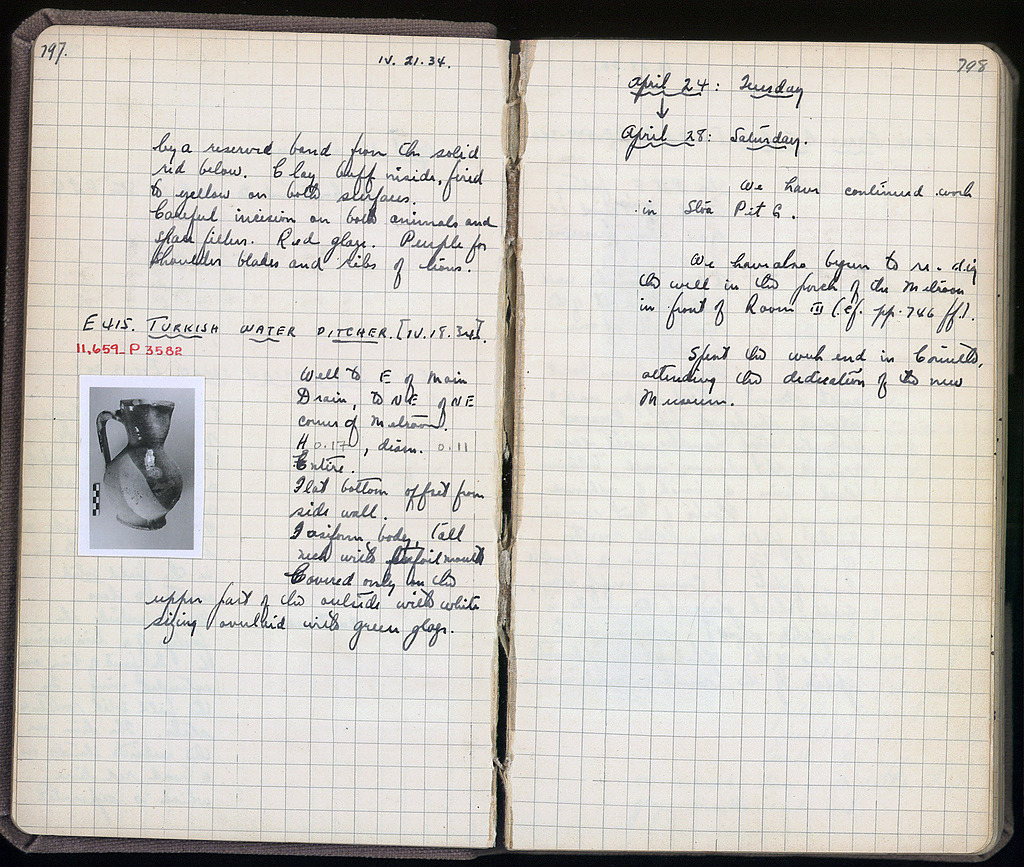 797.
IV. 21. 34.
by a reserved band from the solid
red below. Clay buff inside, fired
to yellow on both surfaces.
Careful incision on both animals and
space fillers. Red glaze. Purple for
shoulder blades and ribs of lions.
E 415. TURKISH WATER PITCHER. [IV. 18. 34].
11,659 - P 3582
Well to E of Main
Drain, to NE of NE
corner of Metroon.
H 0.17, diam. 0.11
Entire.
Flat bottom offset from
side wall.
Fusiform body, tall
neck with trefoil mouth
Covered only on the
upper part of the outside with white
sizing overlaid with green glaze.
798
April 24: Tuesday
↓
April 28: Saturday.
We have continued work
in Stoa Pit G.
We have also begun to re-dig
the well in the porch of the Metroon
in front of Room III (cf. pp. 746 ff).
Spent the week end in Corinth,
attending the dedication of the new
Museum.